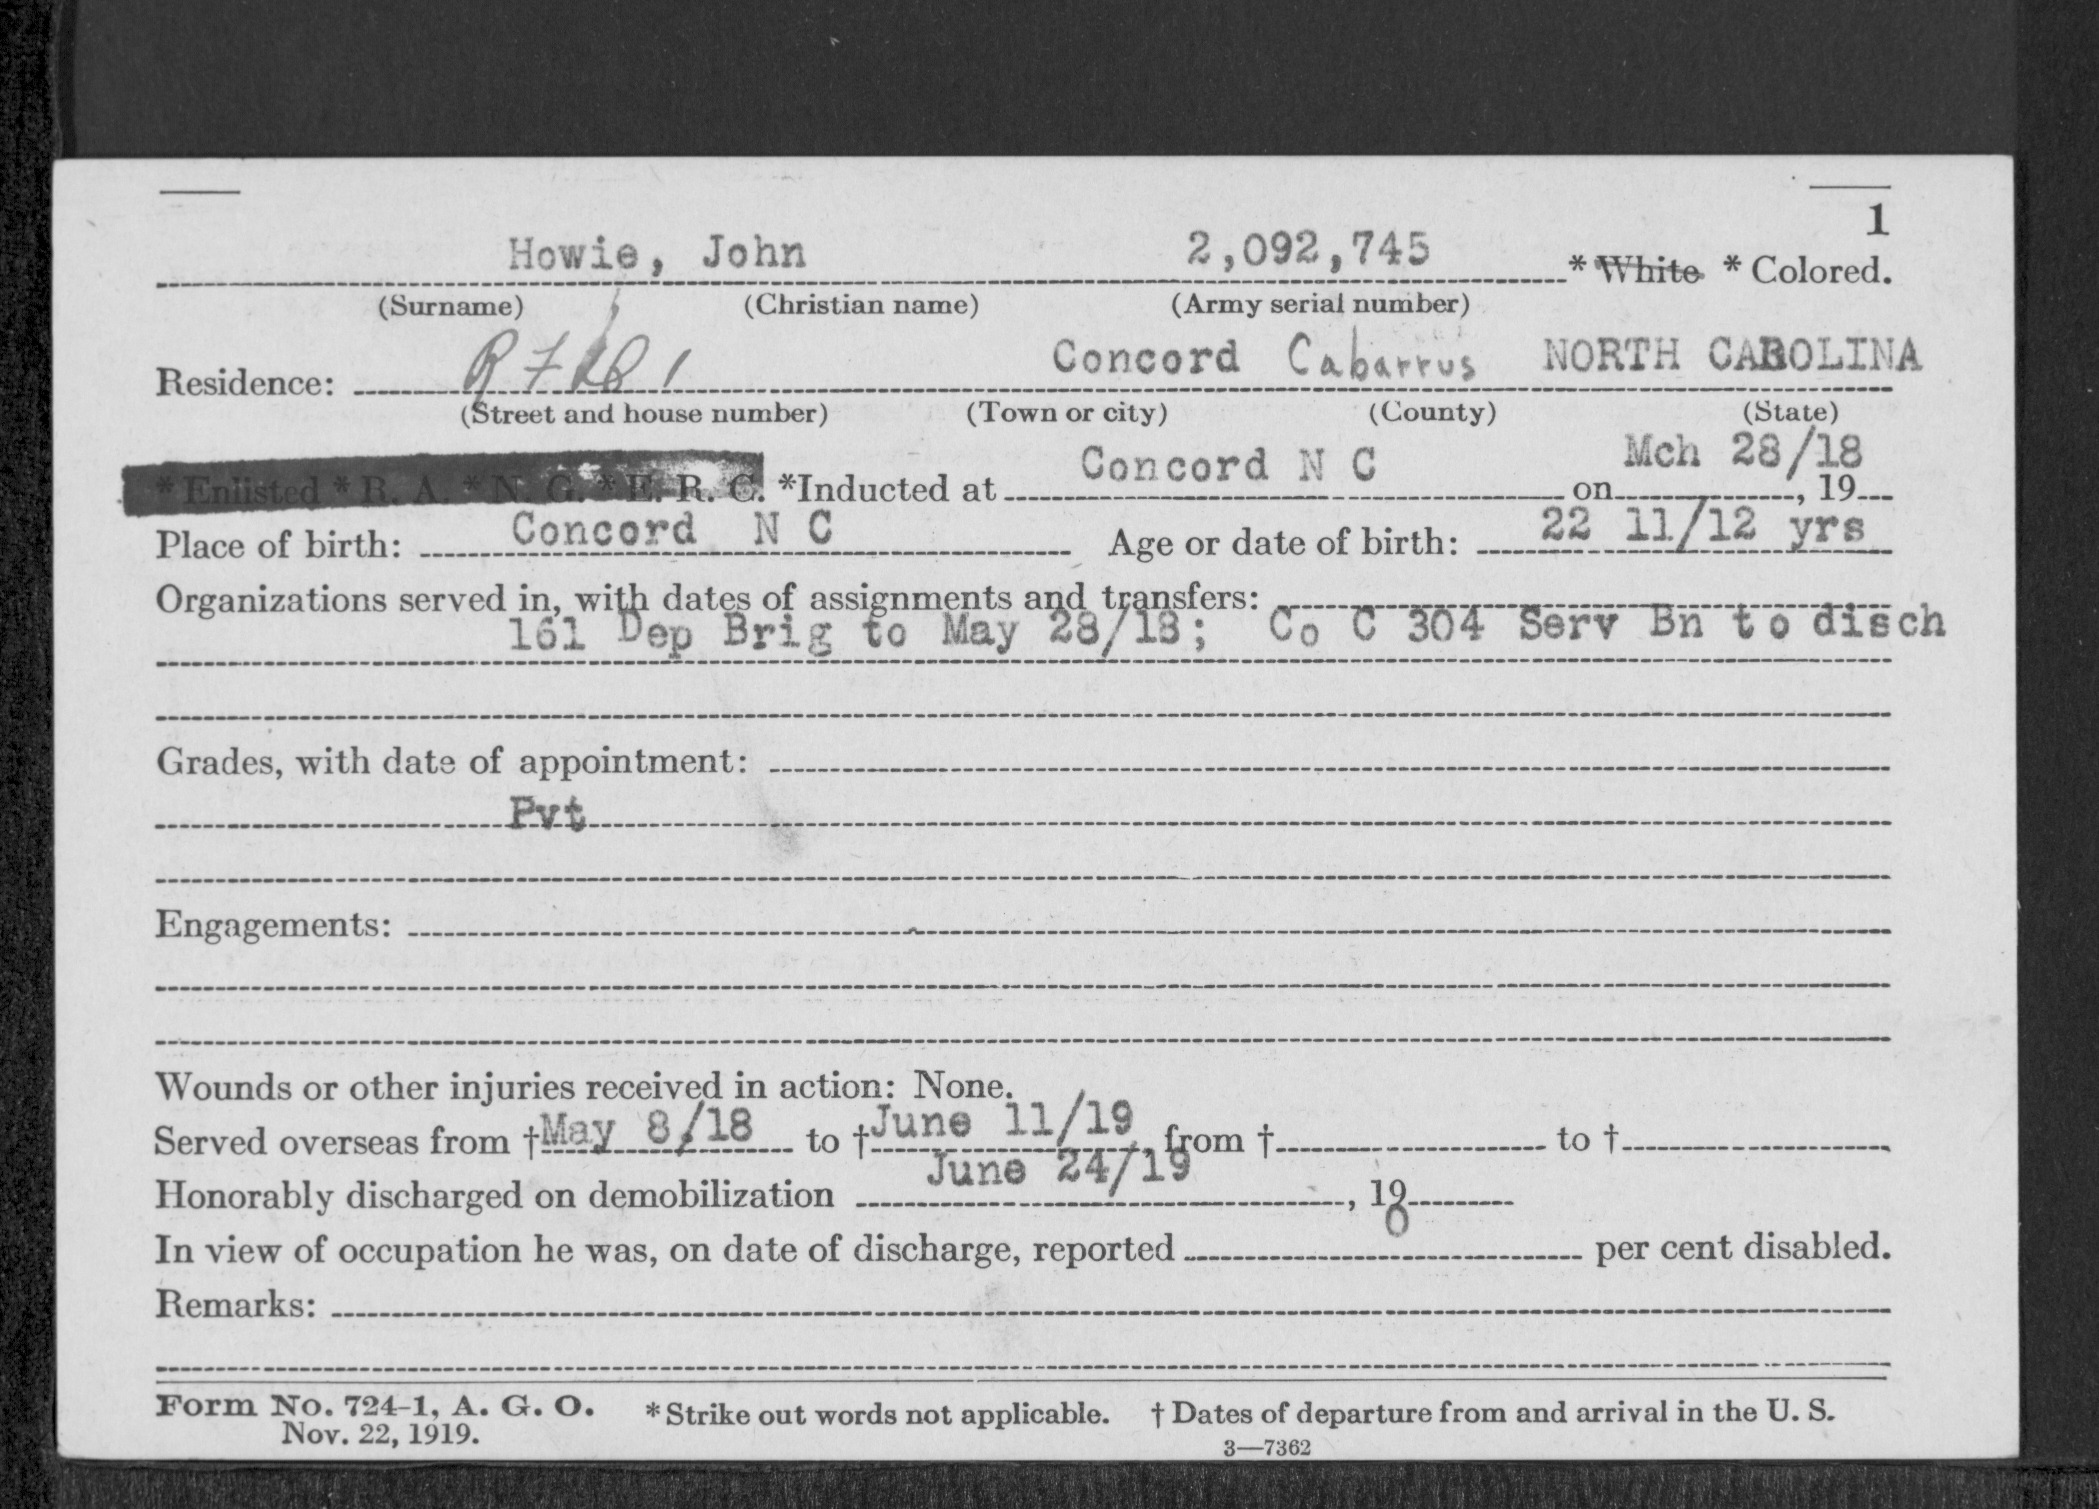 1
Howie, John 2,092,745 * White * Colored.
(Surname) (Christian name) (Army serial number)
Residence: R 7 1 Concord Cabarrus NORTH CAROLINA
(Street and house number) (Town or city) (County) (State)
* Enlisted * R. A. * N. G. * E. R. C. *Inducted at Concord N C on Mch 28/18, 19
Place of birth: Concord N C Age or date of birth: 22 11/12 yrs
Organizations served in, with dates of assignments and transfers:
161 Dep Brig to May 28/18; Co C 304 Serv Bn to disch
Grades, with date of appointment:
Pvt
Engagements:
Wounds or other injuries received in action: None.
Served overseas from †May 8/18 to †June 11/19, from † to †
Honorably discharged on demobilization June 24/19, 19
In view of occupation he was, on date of discharge, reported 0 per cent disabled.
Remarks:
Form No. 724-1, A. G. O. * Strike out words not applicable. † Dates of departure from and arrival in the U. S.
Nov. 22, 1919.
3—7362